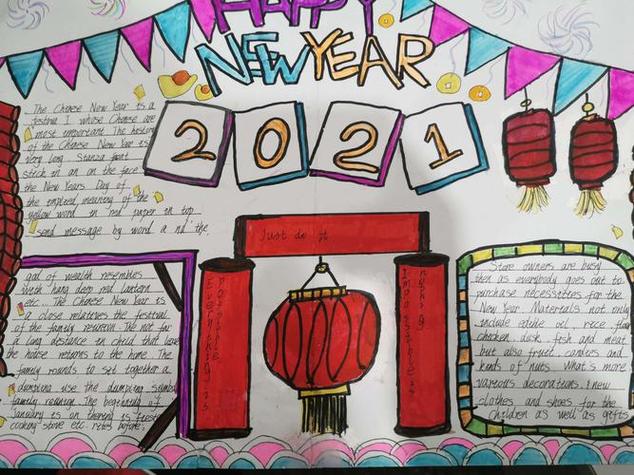 HAPPY
NEW YEAR
2021
The Chinese New Year is a
festival I whose Chinese are
most important. The history
of the Chinese New Year is
very long. Stanza front
stick in an on the face
the New Years Day of
the inspired meaning of the
yellow word in red paper in top
send message by word a nd the
god of wealth resembles
with hang deep red lantern
etc... The Chinese New Year is
a close relatives the festival
of the family reunion. The not far
a long distance in child that love
the house returns to the home. The
family rounds to sit together a
dumpling use the dumpling symbol
family reunion. The beginning of
January is on there is
cooking stove etc. rites before.
Just do it
Everything is
possible
Impossible is
nothing
Store owners are busy
then as everybody goes out to
purchase necessities for the
New Year. Materials not only
include edible oil, rice flour
chicken, duck, fish and meat
but also fruit, candies and
kinds of nuts. What's more
various decorations, new
clothes and shoes for the
children as well as gifts